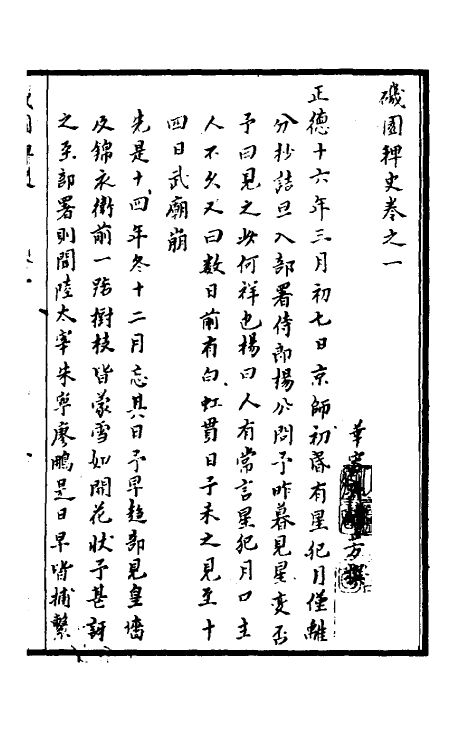 磯園稗史卷之一
華 方撰
正德十六年三月初七日京師初昏有星犯月僅離
分抄詰旦入部署侍郎楊公問予昨暮見星变否
予曰見之此何祥也楊曰人有常言星犯月口主
人不久又曰数日前有白虹貫日予未之見至十
四日武廟崩
先是十四年冬十二月忘其日予早趨部見皇墻
及錦衣衛前一路樹枝皆蒙雪如開花狀予甚訝
之至部署則聞陸太宰朱寧廖鵬是日早皆捕繫